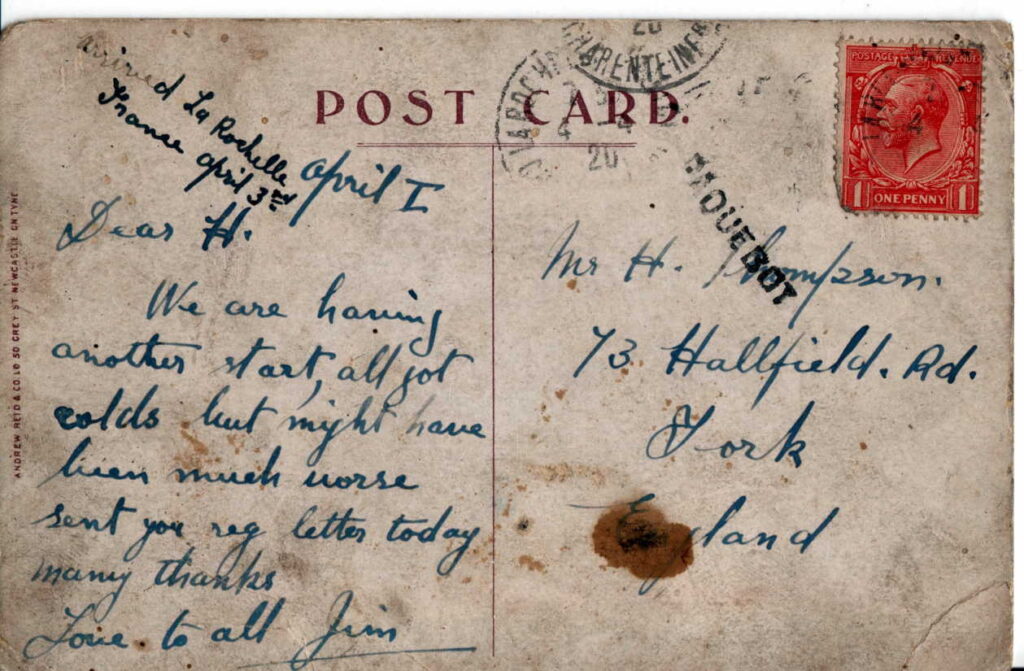 arrived La Rochelle
France april 3rd
POST CARD.
LA ROCHE
CHARENTE-INFRE
20
4
20
PAQUEBOT
POSTAGE REVENUE
1 ONE PENNY 1
april I
Dear H.
We are having
another start, all got
colds but might have
been much worse
sent you reg letter today
many thanks
Love to all Jim
Mr H. Thompson.
73 Hallfield. Rd.
York
England
ANDREW REID & CO LD 50 GREY ST NEWCASTLE ON TYNE